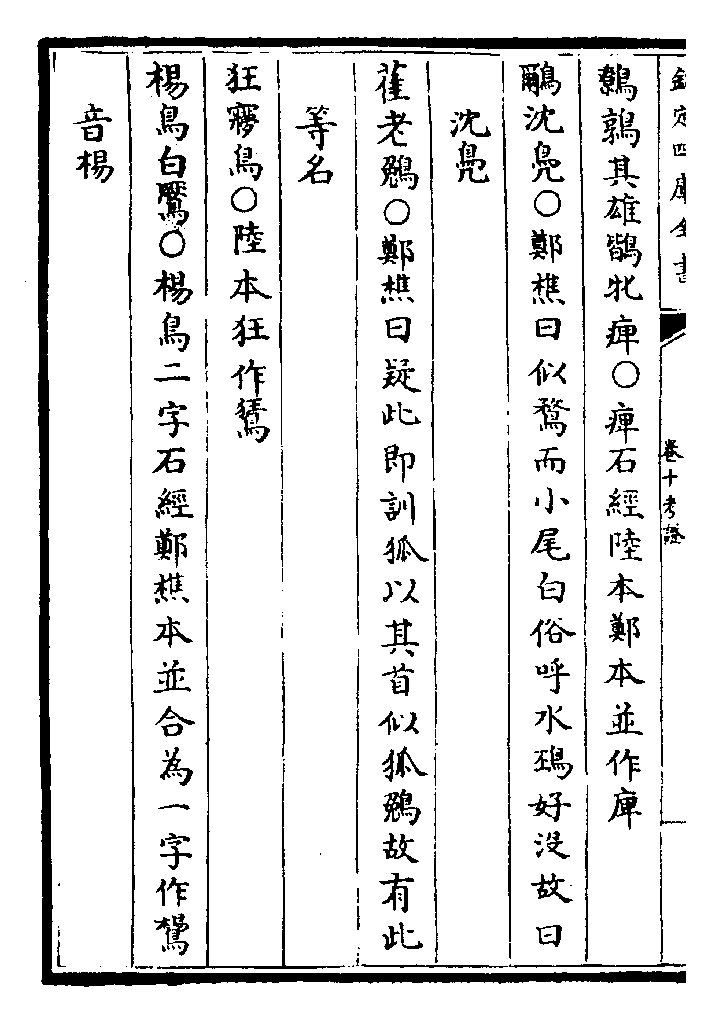 欽定四庫全書 卷十考證
鷯鶉其雄鶛牝痺○痺石經陸本鄭本並作庳
鸍沈鳧○鄭樵曰似鶩而小尾白俗呼水鵶好沒故曰
沈鳧
萑老鵵○鄭樵曰疑此即訓狐以其首似狐鵵故有此
等名
狂㝱鳥○陸本狂作鵟
楊鳥白鷢○楊鳥二字石經鄭樵本並合為一字作鸉
音楊